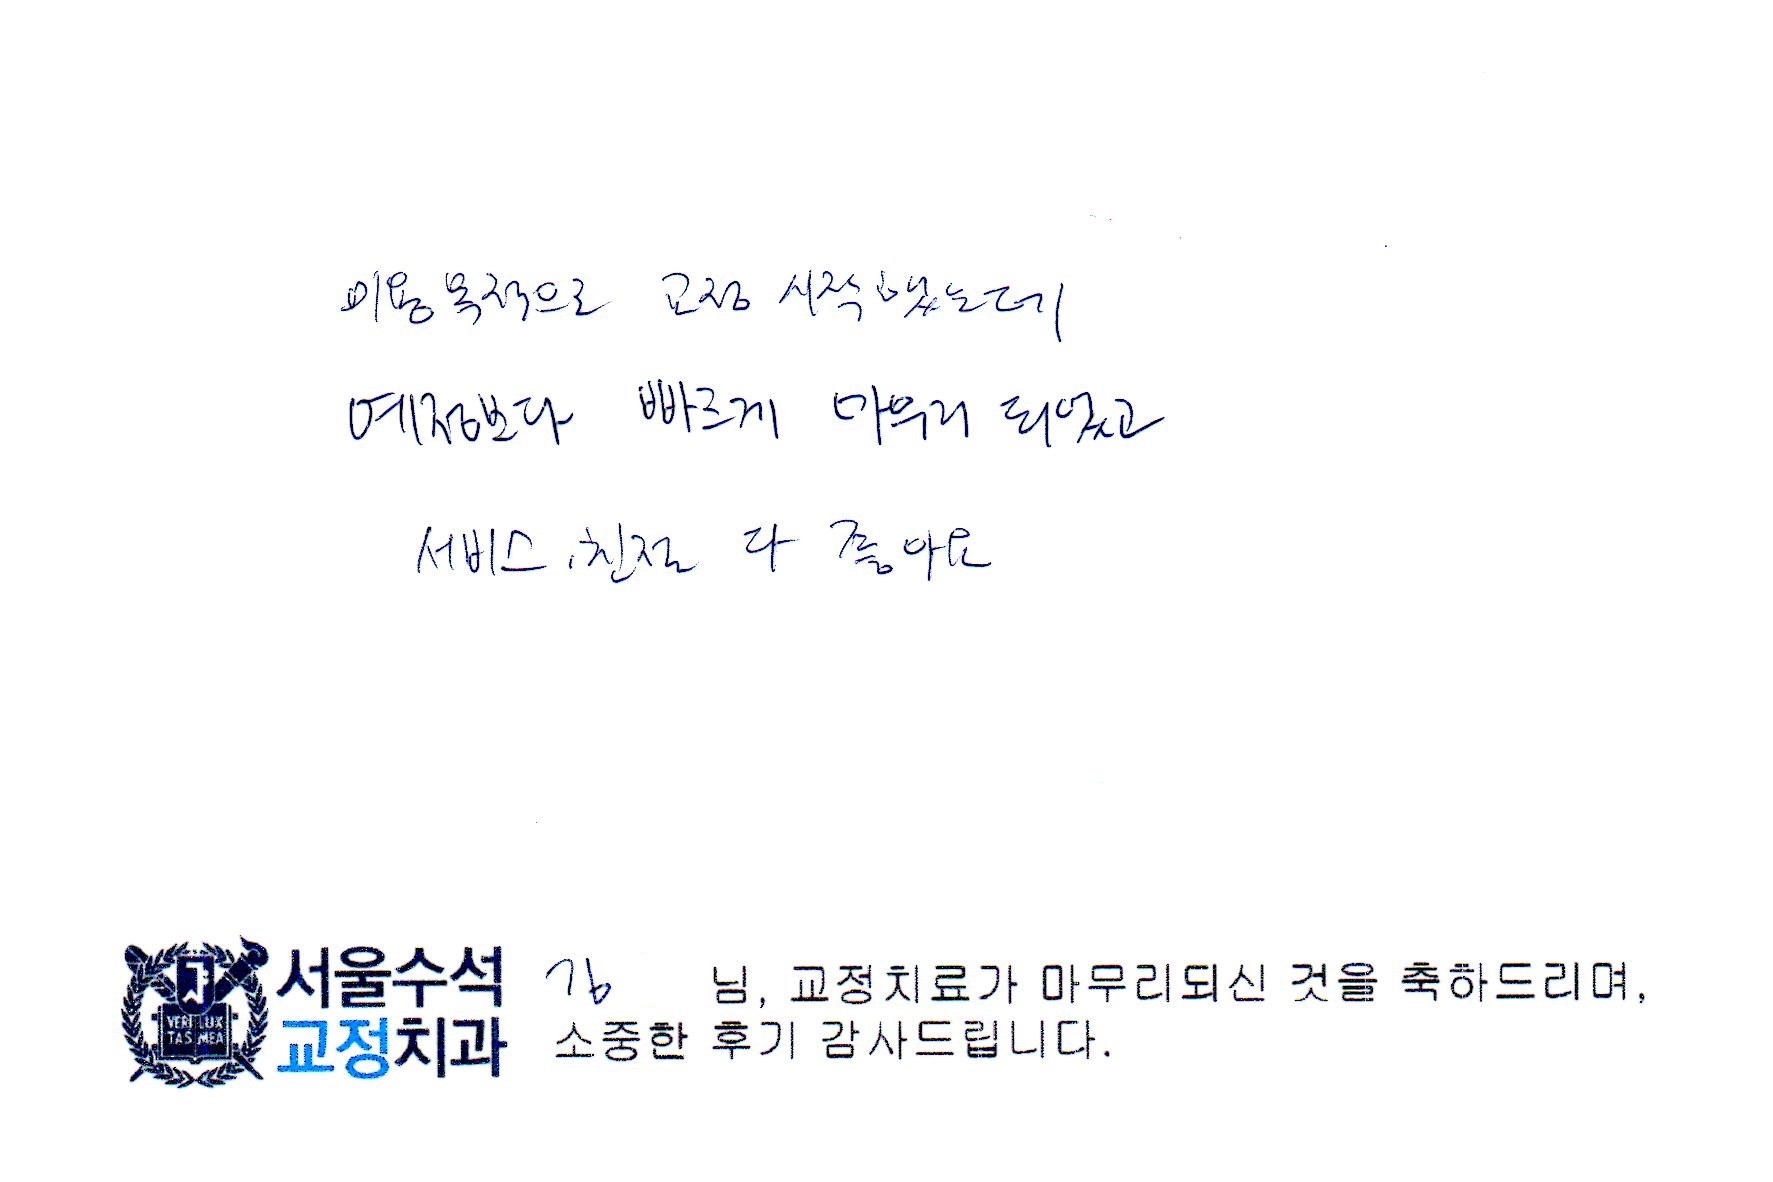 미용 목적으로 교정 시작했는데
예정보다 빠르게 마무리 되었고
서비스, 친절 다 좋아요
서울수석
교정치과
VERI LUX
TAS MEA
김 님, 교정치료가 마무리되신 것을 축하드리며,
소중한 후기 감사드립니다.